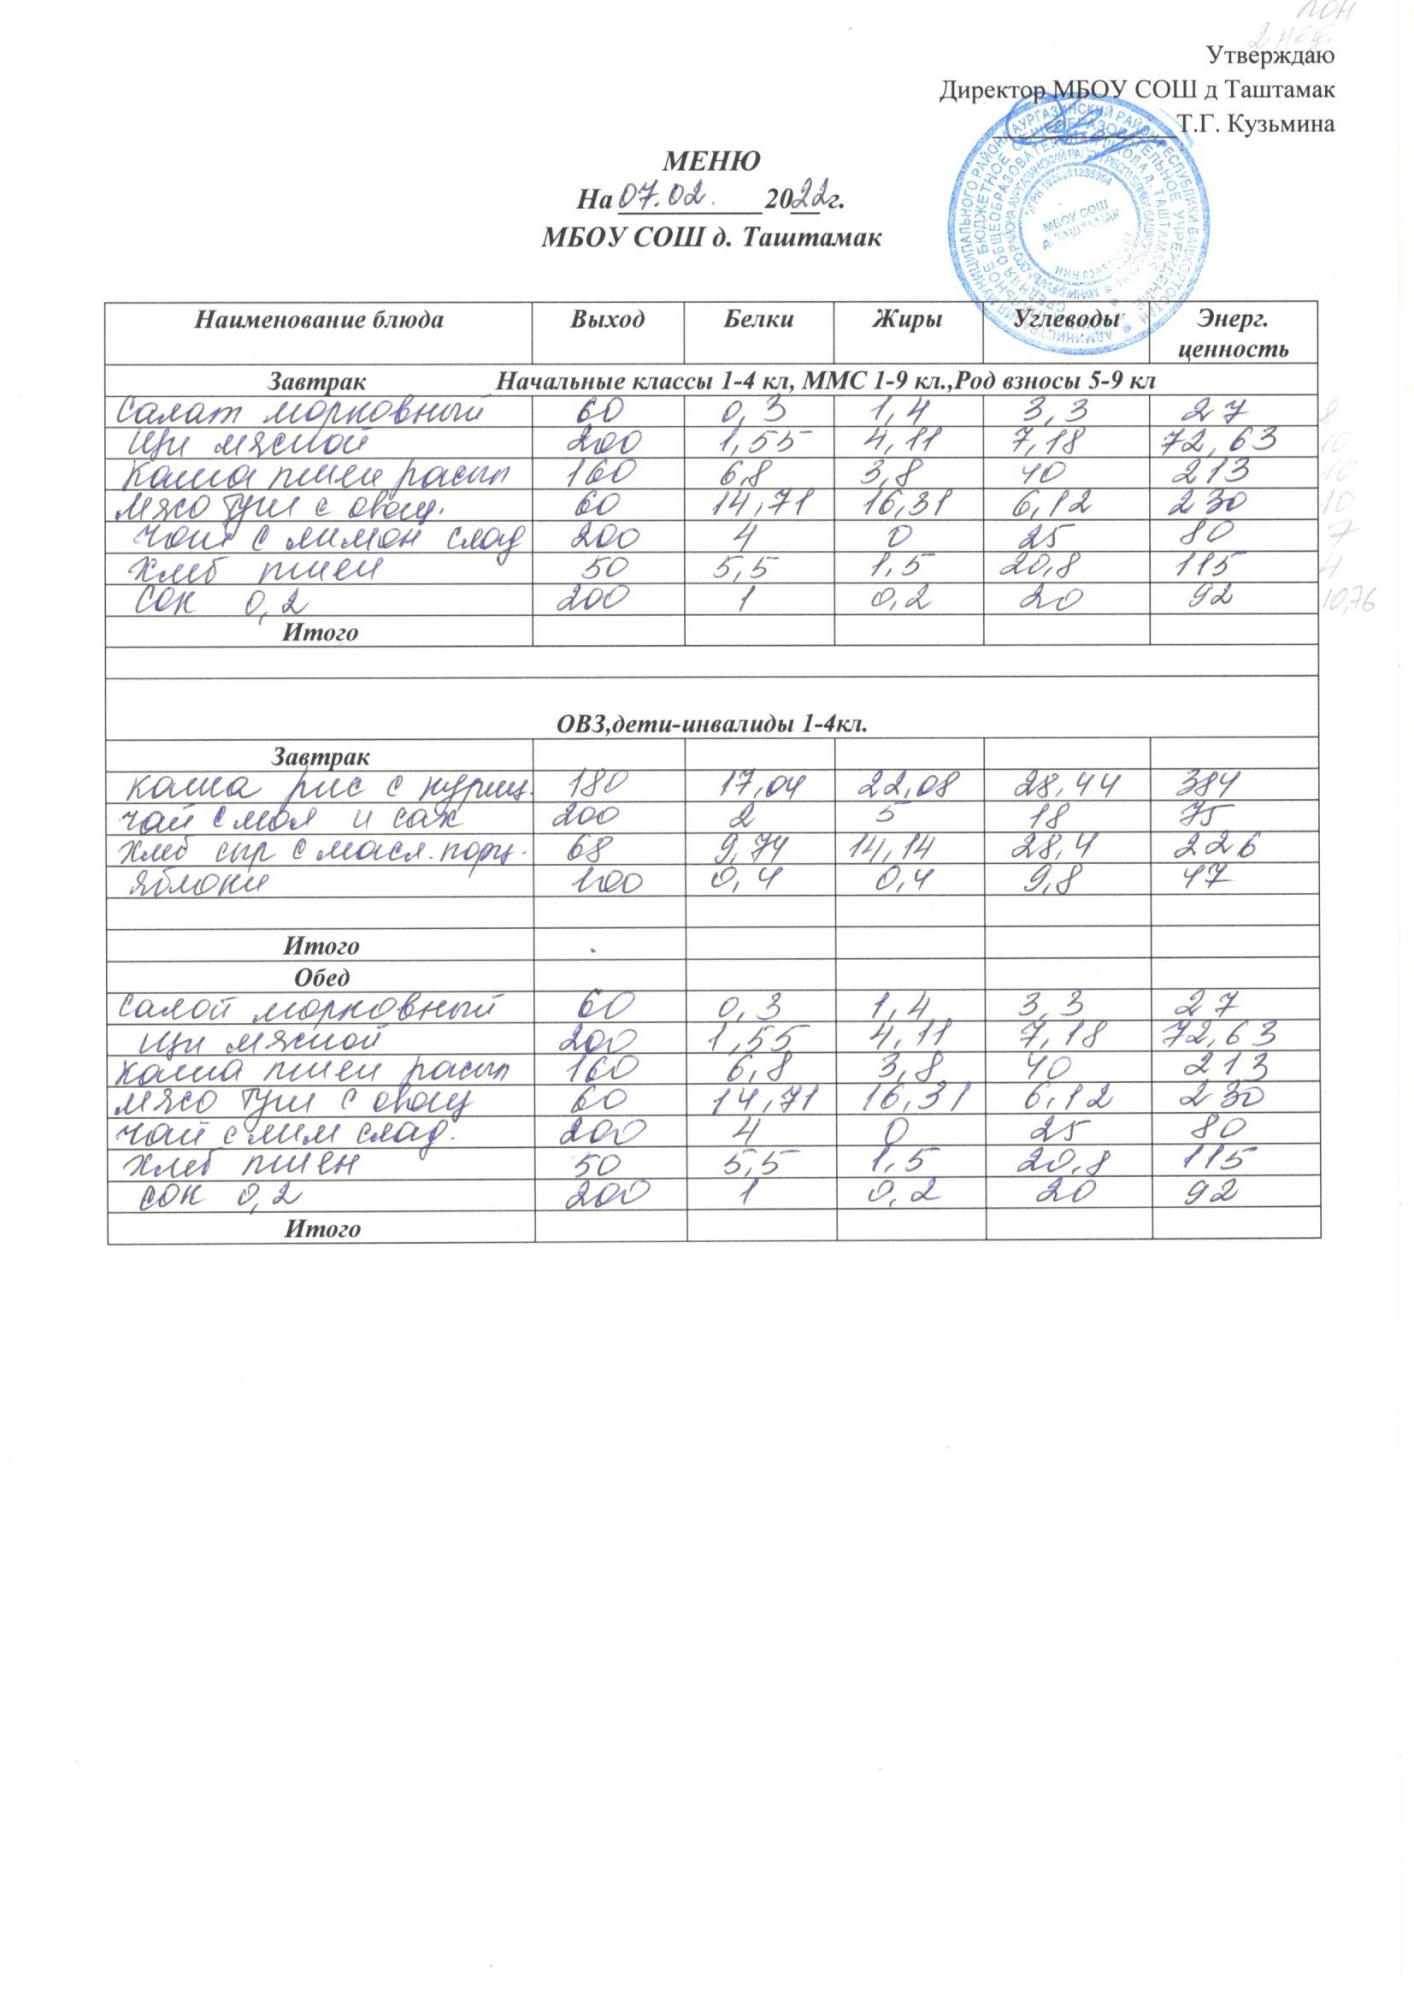 пон
2 нед.
Утверждаю
Директор МБОУ СОШ д Таштамак
Т.Г. Кузьмина
МЕНЮ
На 07.02. 2022г.
МБОУ СОШ д. Таштамак
МБОУ СОШ
Д. ТАШТАМАК
Наименование блюда Выход Белки Жиры Углеводы Энерг. ценность
Завтрак Начальные классы 1-4 кл, ММС 1-9 кл.,Род взносы 5-9 кл
Салат морковный 60 0,3 1,4 3,3 27 8
Щи мясной 200 1,55 4,11 7,18 72,63 10
Каша пшен расып 160 6,8 3,8 40 213 10
Мясо туш с овощ. 60 14,71 16,31 6,12 230 10
Чай с лимон слад 200 4 0 25 80 7
Хлеб пшен 50 5,5 1,5 20,8 115 4
Сок 0,2 200 1 0,2 20 92 10,76
Итого
ОВЗ,дети-инвалиды 1-4кл.
Завтрак
Каша рис с куриц. 180 17,04 22,08 28,44 384
Чай с мол и сах 200 2 5 18 75
Хлеб сыр с масл. порц. 68 9,74 14,14 28,4 226
Яблоки 100 0,4 0,4 9,8 47
Итого
Обед
Салат морковный 60 0,3 1,4 3,3 27
Щи мясной 200 1,55 4,11 7,18 72,63
Каша пшен расып 160 6,8 3,8 40 213
Мясо туш с овощ 60 14,71 16,31 6,12 230
Чай с лим слад. 200 4 0 25 80
Хлеб пшен 50 5,5 1,5 20,8 115
Сок 0,2 200 1 0,2 20 92
Итого